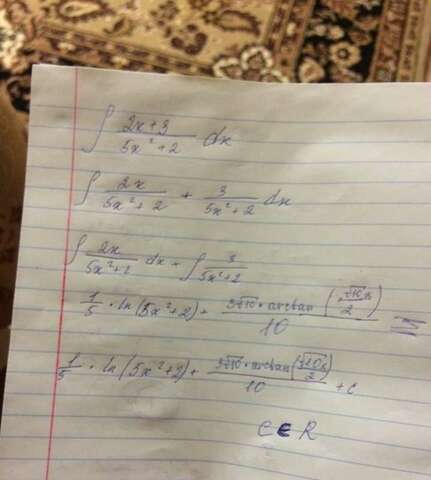 ∫ (2x+3)/(5x²+2) dx
∫ 2x/(5x²+2) + 3/(5x²+2) dx
∫ 2x/(5x²+2) dx + ∫ 3/(5x²+2)
1/5 · ln(5x²+2) + (3√10 · arctan(√10x/2))/10 =
1/5 · ln(5x²+2) + (3√10 · arctan(√10x/2))/10 + c
C ∈ R